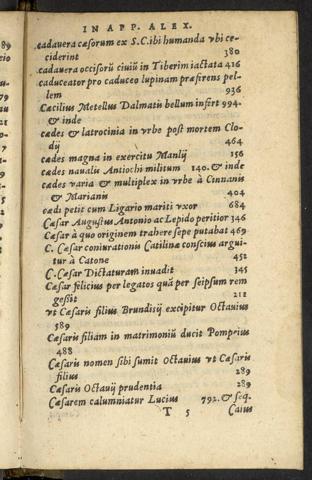 IN APP. ALEX.
cadauera cæsorum ex S.C. ibi humanda vbi ce-
ciderint 380
cadauera occisorũ ciuiũ in Tiberim iactata 416
caduceator pro caduceo lupinam præfirens pel-
lem 936
Cæcilius Metellus Dalmatis bellum infirt 994.
& inde
cædes & latrocinia in vrbe post mortem Clo-
dij 464
cædes magna in exercitu Manlij 156
cædes naualis Antiochi militum 140. & inde
cædes varia & multiplex in vrbe à Cinnanis
& Marianis 404
cædi petit cum Ligario mariti vxor 684
Cæsar Augustus Antonio ac Lepido peritior 346
Cæsar à quo originem trahere sepe putabat 469
C. Cæsar coniurationis Catilinæ conscius argui-
tur à Catone 452
C. Cæsar Dictaturam inuadit 345
Cæsar felicius per legatos quã per seipsum rem
gessit 212
vt Cæsaris filius Brundisij excipitur Octauius
589
Cæsaris filiam in matrimoniũ ducit Pompeius
488
Cæsaris nomen sibi sumit Octauius vt Cæsaris
filius 289
Cæsaris Octauij prudentia 289
Cæsarem calumniatur Lucius 792. & seq.
T 5 Caius